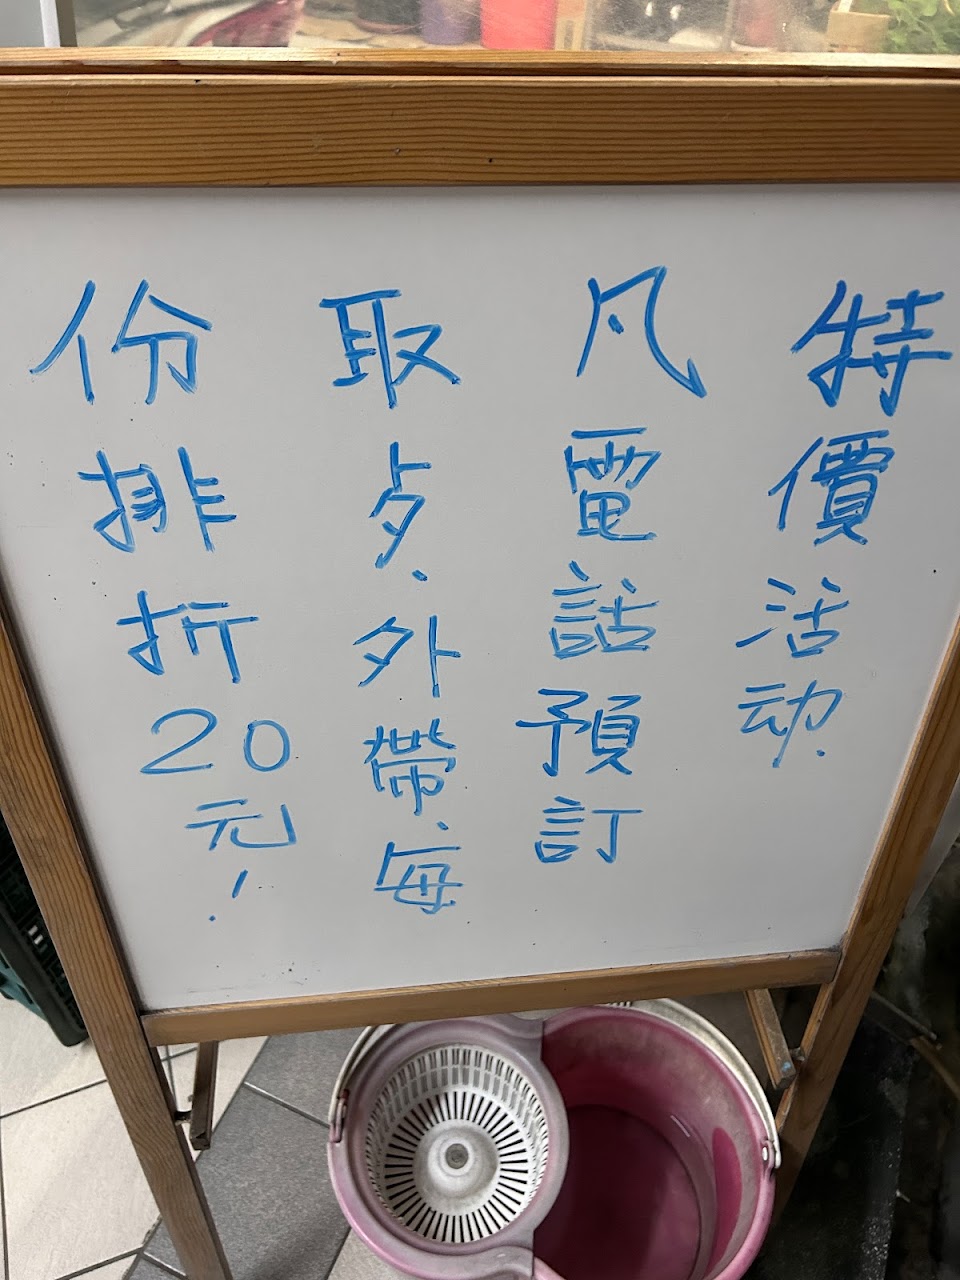 特價活动.
凡電話預訂
取歺、外帶、每
份排折20元!